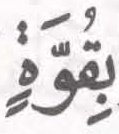 بِقُوَّةٍ